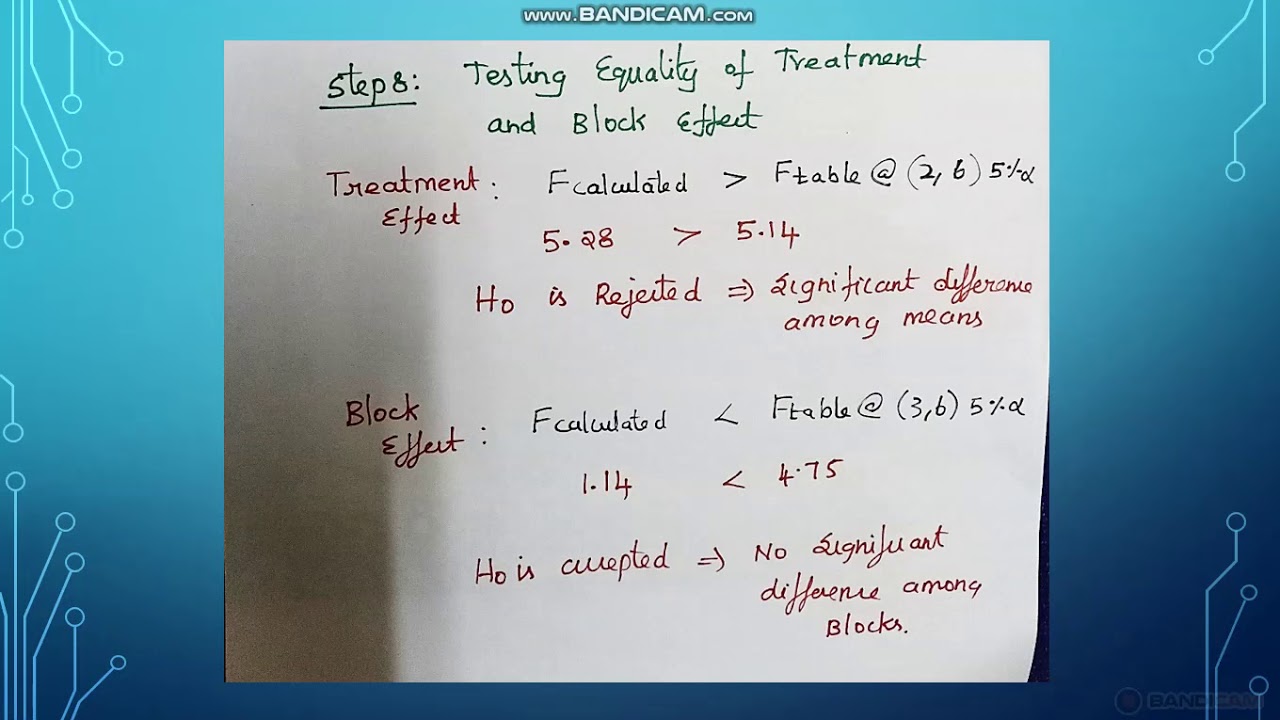 www.BANDICAM.com
Step 8: Testing Equality of Treatment
and Block Effect
Treatment Effect : Fcalculated > Ftable @ (2, 6) 5% α
5.28 > 5.14
Ho is Rejected ⇒ Significant difference
among means
Block Effect : Fcalculated < Ftable @ (3,6) 5% α
1.14 < 4.75
Ho is accepted ⇒ No Significant
difference among
Blocks.
BANDICAM